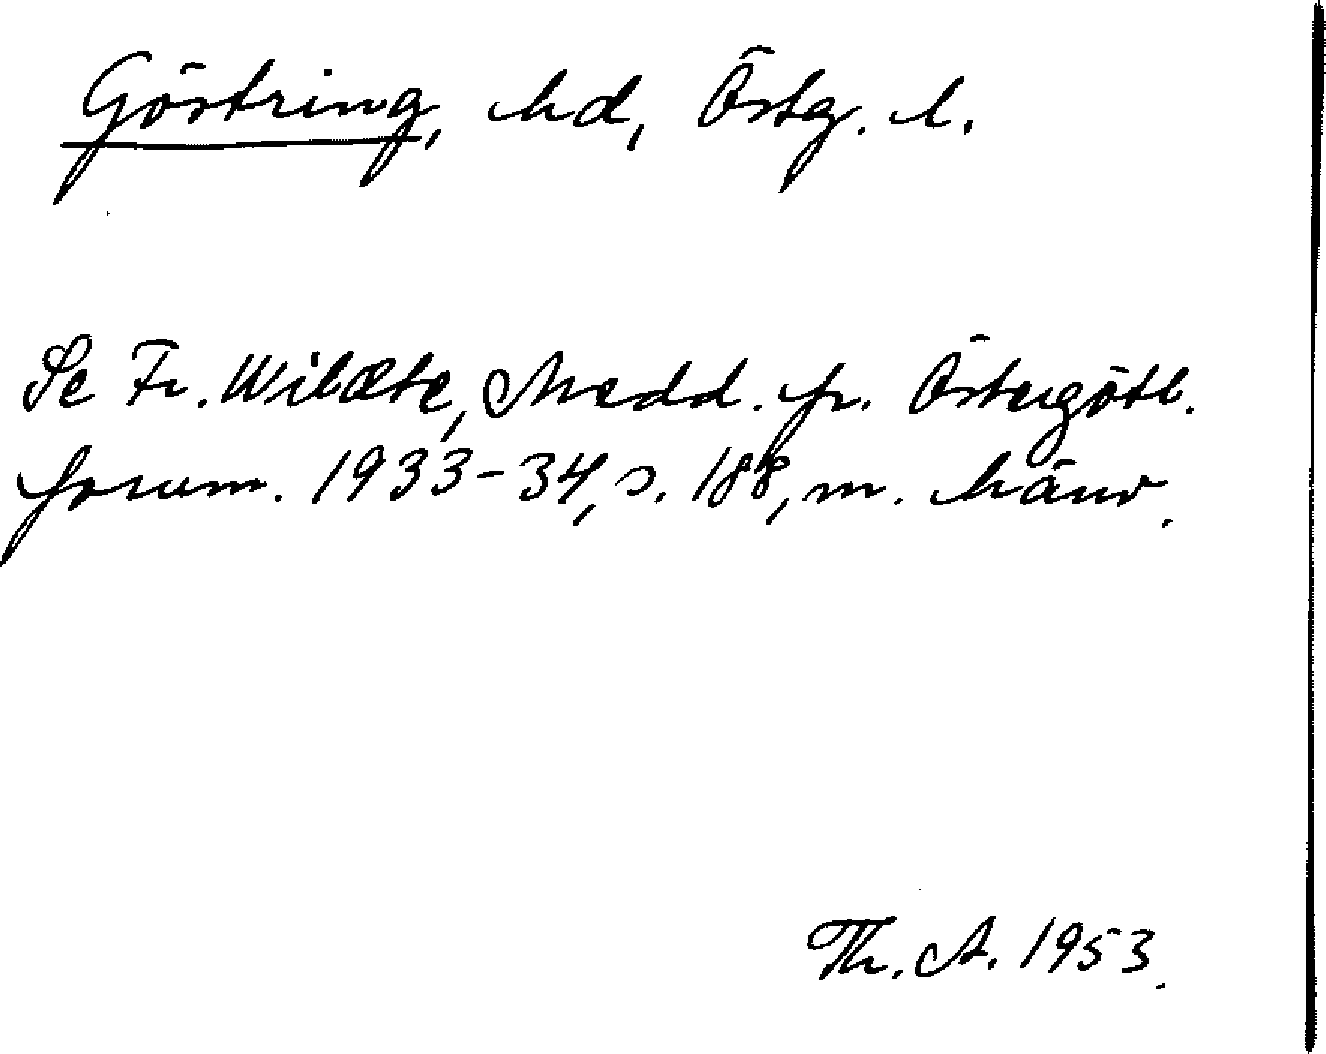 Göstring, hd, Östg. l.
Se Fr. Wildte, Medd. fr. Östergötl.
fornm. 1933-34, s. 188, m. hänv.
Th. A. 1953.